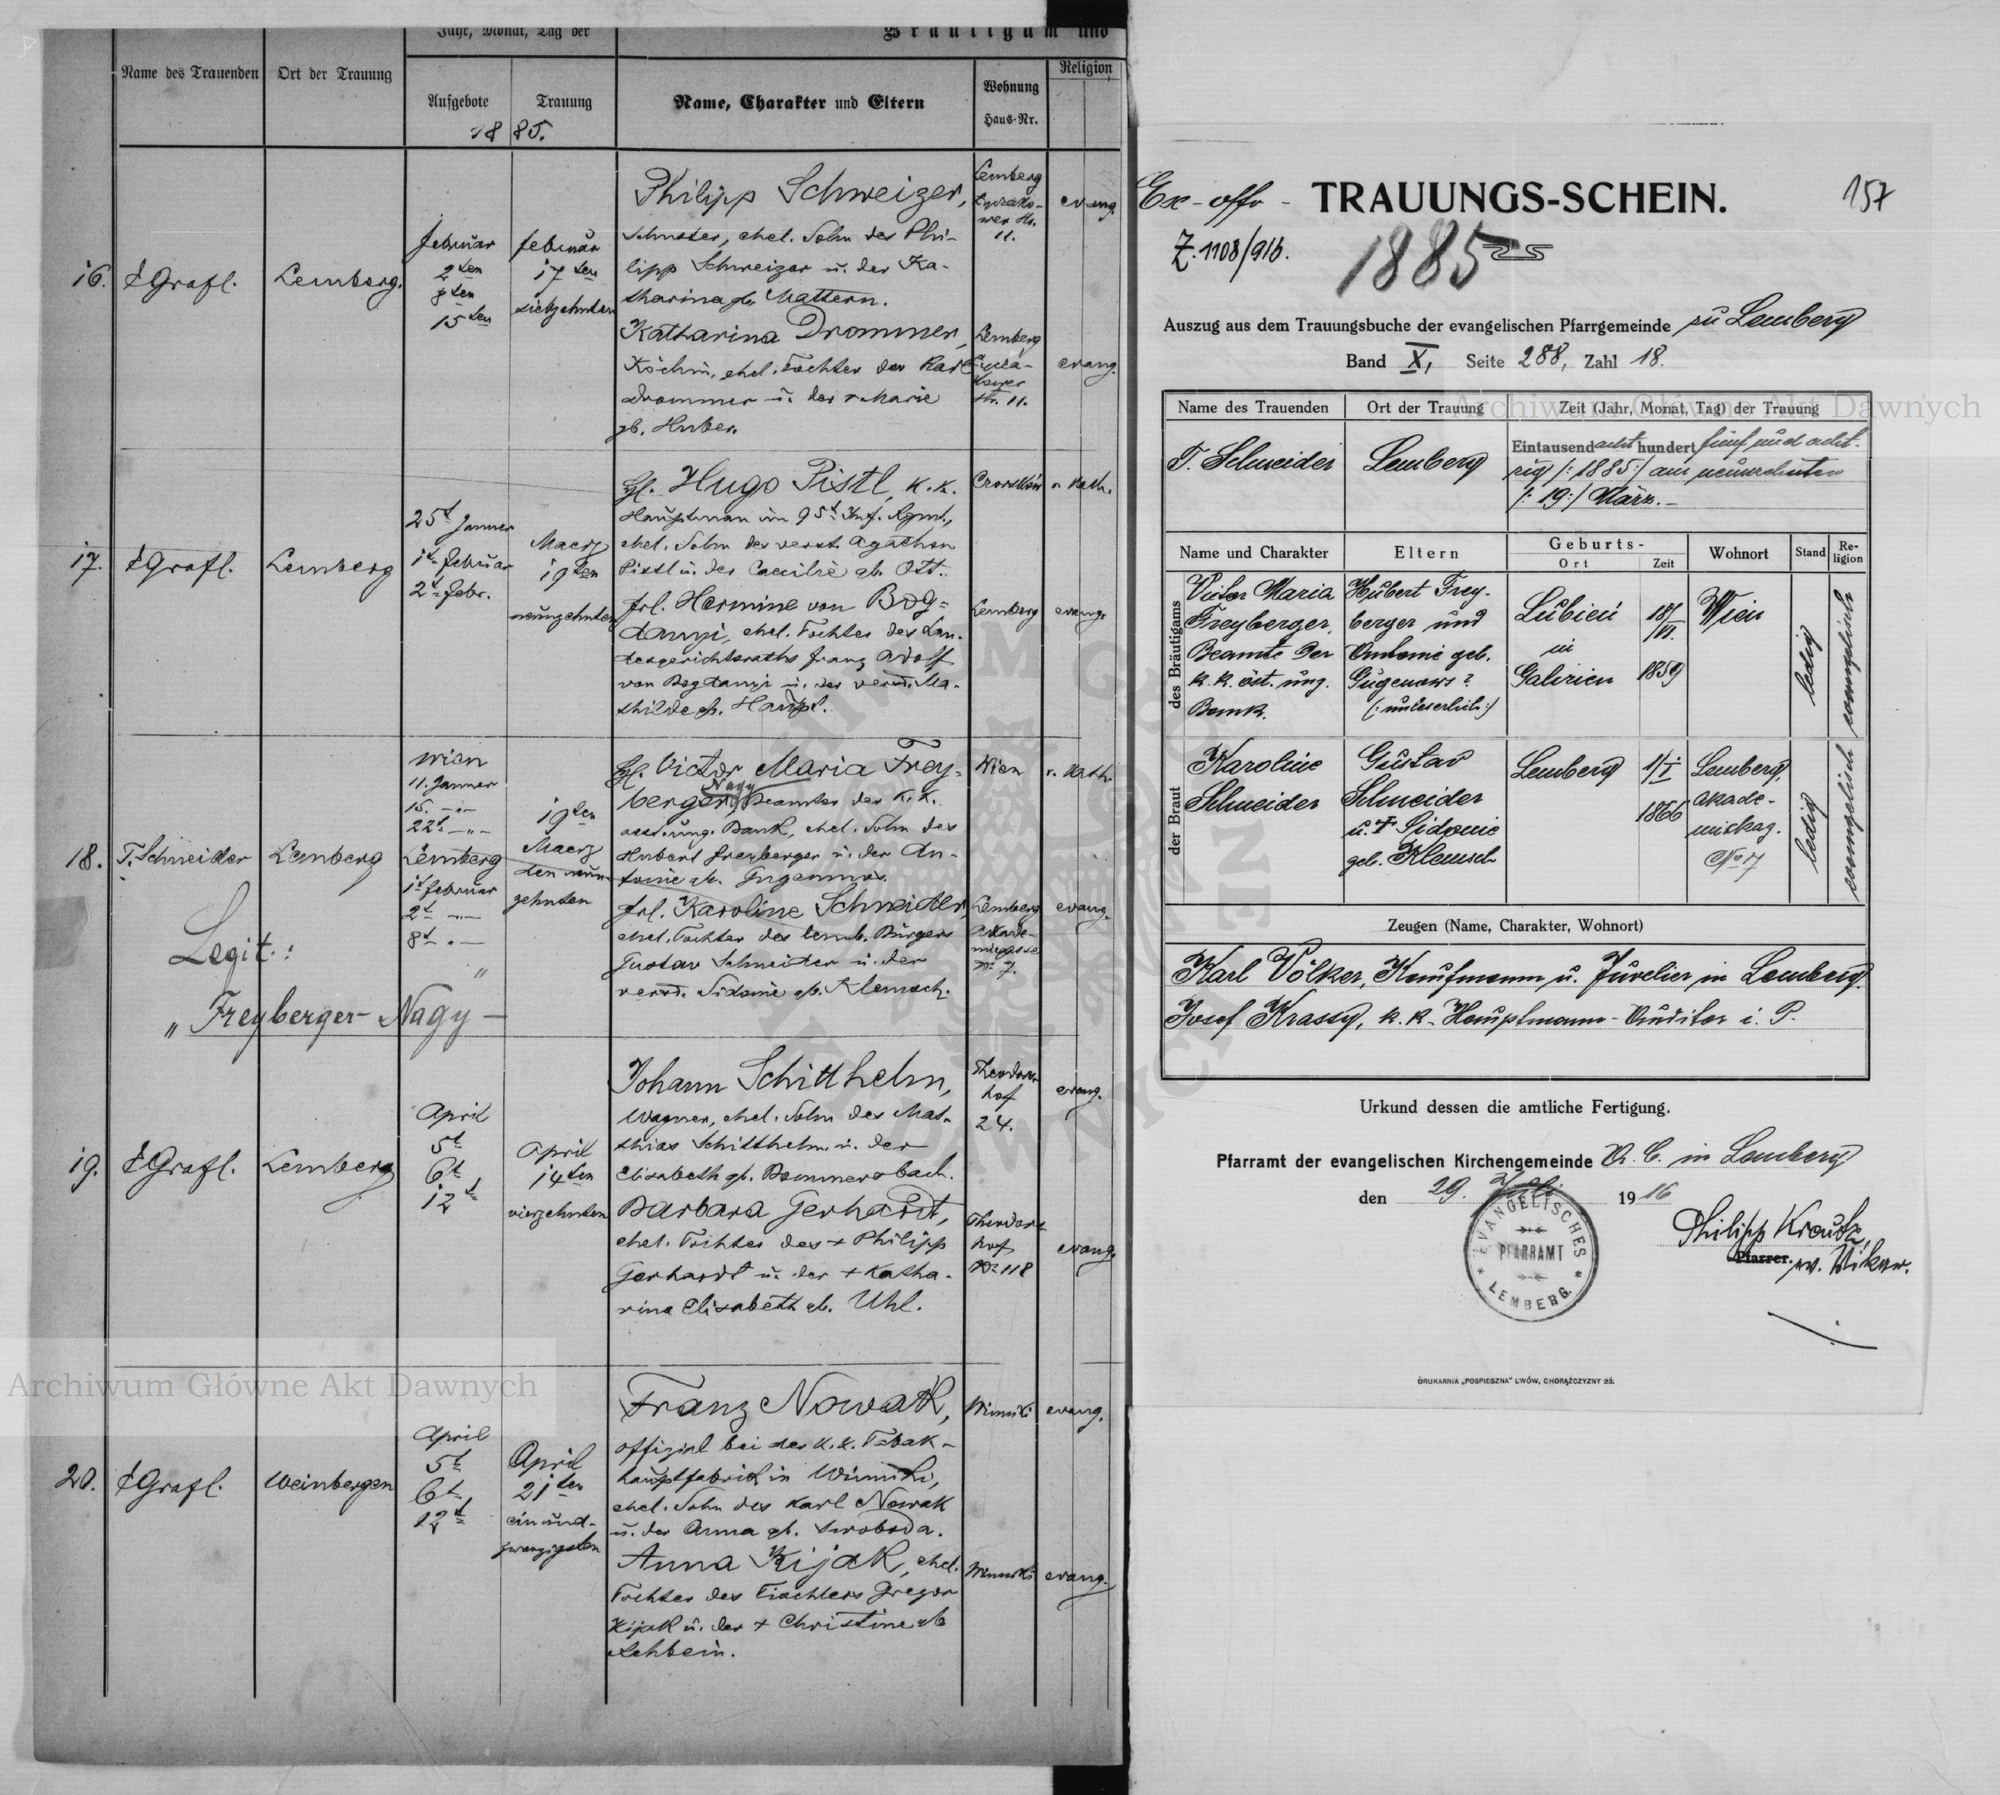 Jahr, Monat, Tag der
Bräutigam und
Name des Trauenden
Ort der Trauung
Aufgebote
Trauung
Name, Charakter und Eltern
Wohnung
Haus-Nr.
Religion
1885.
16.
Grafl.
Lemberg.
Februar
2ten
8ten
15ten
Februar
17ten
siebzehnten
Philipp Schweizer,
Schuster, ehel. Sohn des Phi-
lipp Schweizer u. der Ka-
tharina gb. Mattern.
Lemberg
11.
evang.
Katharina Drommer,
Köchin, ehel. Tochter des Karl
Drommer u. der Marie
gb. Huber.
Lemberg
11.
evang.
17.
Grafl.
Lemberg
25t Janner
1t Februar
2t Febr.
Maerz
19ten
neunzehnten
H. Hugo Pistl, k.k.
Hauptman im 95t Inf. Rgmt.,
ehel. Sohn des verst. Agathon
Pistl u. der Caecilie gb. Ott.
r. Kath.
Frl. Hermine von Bog=
danyi, ehel. Tochter des Lan-
desgerichtsraths Franz Adolf
von Bogdanyi u. der verst. Ma-
thilde gb. Haupt.
Lemberg
evang.
18.
T. Schneider
Lemberg
Wien
11. Janner
15. -"-
22t -"-
Lemberg
1t Februar
2t -"-
8t -"-
19ten
Maerz
den neun-
zehnten
H. Victor Maria Frey-
Nagy
berger, Beamter der k.k.
oest. ung. Bank, ehel. Sohn des
Hubert Freyberger u. der An-
tonie gb.
Wien
r. Kath.
Frl. Karoline Schneider,
ehel. Tochter des Lemb. Bürgers
Gustav Schneider u. der
verst. Sidonie gb. Klemsch.
Lemberg
Akade-
miegasse
Nr 7.
evang.
Legit.:
"Freyberger-Nagy-
"
19.
Grafl.
Lemberg
April
5t
6t
12t
April
14ten
vierzehnten
Johann Schitthelm,
Wagner, ehel. Sohn des Mat-
thias Schitthelm u. der
Elisabeth gb. Bommersbach.
Theodors-
hof
24.
evang.
Barbara Gerhardt,
ehel. Tochter des + Philipp
Gerhardt u. der + Katha-
rina Elisabeth gb. Uhl.
Theodors-
hof
Nr 118
evang.
20.
Grafl.
Weinbergen
April
5t
6t
12t
April
21ten
einund-
zwanzigsten
Franz Nowak,
Offizial bei der k.k. Tabak-
hauptfabrik in Winniki,
ehel. Sohn des Karl Nowak
u. der Anna gb. Swoboda.
Winniki
evang.
Anna Kijak, ehel.
Tochter des Tischlers Gregor
Kijak u. der + Christine gb
Lehbein.
Winniki
evang.
Archiwum Główne Akt Dawnych
Ex-offo -
TRAUUNGS-SCHEIN.
157
Z. 1108/916.
1885
Auszug aus dem Trauungsbuche der evangelischen Pfarrgemeinde zu Lemberg
Band X, Seite 288, Zahl 18.
Archiwum Główne Akt Dawnych
Name des Trauenden
Ort der Trauung
Zeit (Jahr, Monat, Tag) der Trauung
T. Schneider
Lemberg
Eintausend acht hundert fünf und acht-
zig /:1885:/ am neunzehnten
/:19:/ März.-
Name und Charakter
Eltern
Geburts-
Ort
Zeit
Wohnort
Stand
Re-
ligion
des Bräutigams
Victor Maria
Freyberger,
Beamte der
k.k. öst. ung.
Bank.
Hubert Frey-
berger und
Antonie geb.
Gugenows?
(:unleserlich:)
Lubień
in
Galizien
18/
VI.
1859
Wien
ledig
evangelisch
der Braut
Karoline
Schneider
Gustav
Schneider
u. + Sidonie
geb. Klemsch
Lemberg
1/I
1866
Lemberg,
Akade-
miekag.
No 17
ledig
evangelisch
Zeugen (Name, Charakter, Wohnort)
Karl Völker, Kaufmann u. Juvelier in Lemberg.
Josef Krassy, k.k. Hauptmann-Auditor i. P.
Urkund dessen die amtliche Fertigung.
Pfarramt der evangelischen Kirchengemeinde A. C. in Lemberg
den 29. Juli 1916
EVANGELISCHES
PFARRAMT
LEMBERG
Philipp Krautz,
Pfarrer. Vikar.
DRUKARNIA „POSPIESZNA" LWÓW, CHORĄŻCZYZNY 25.